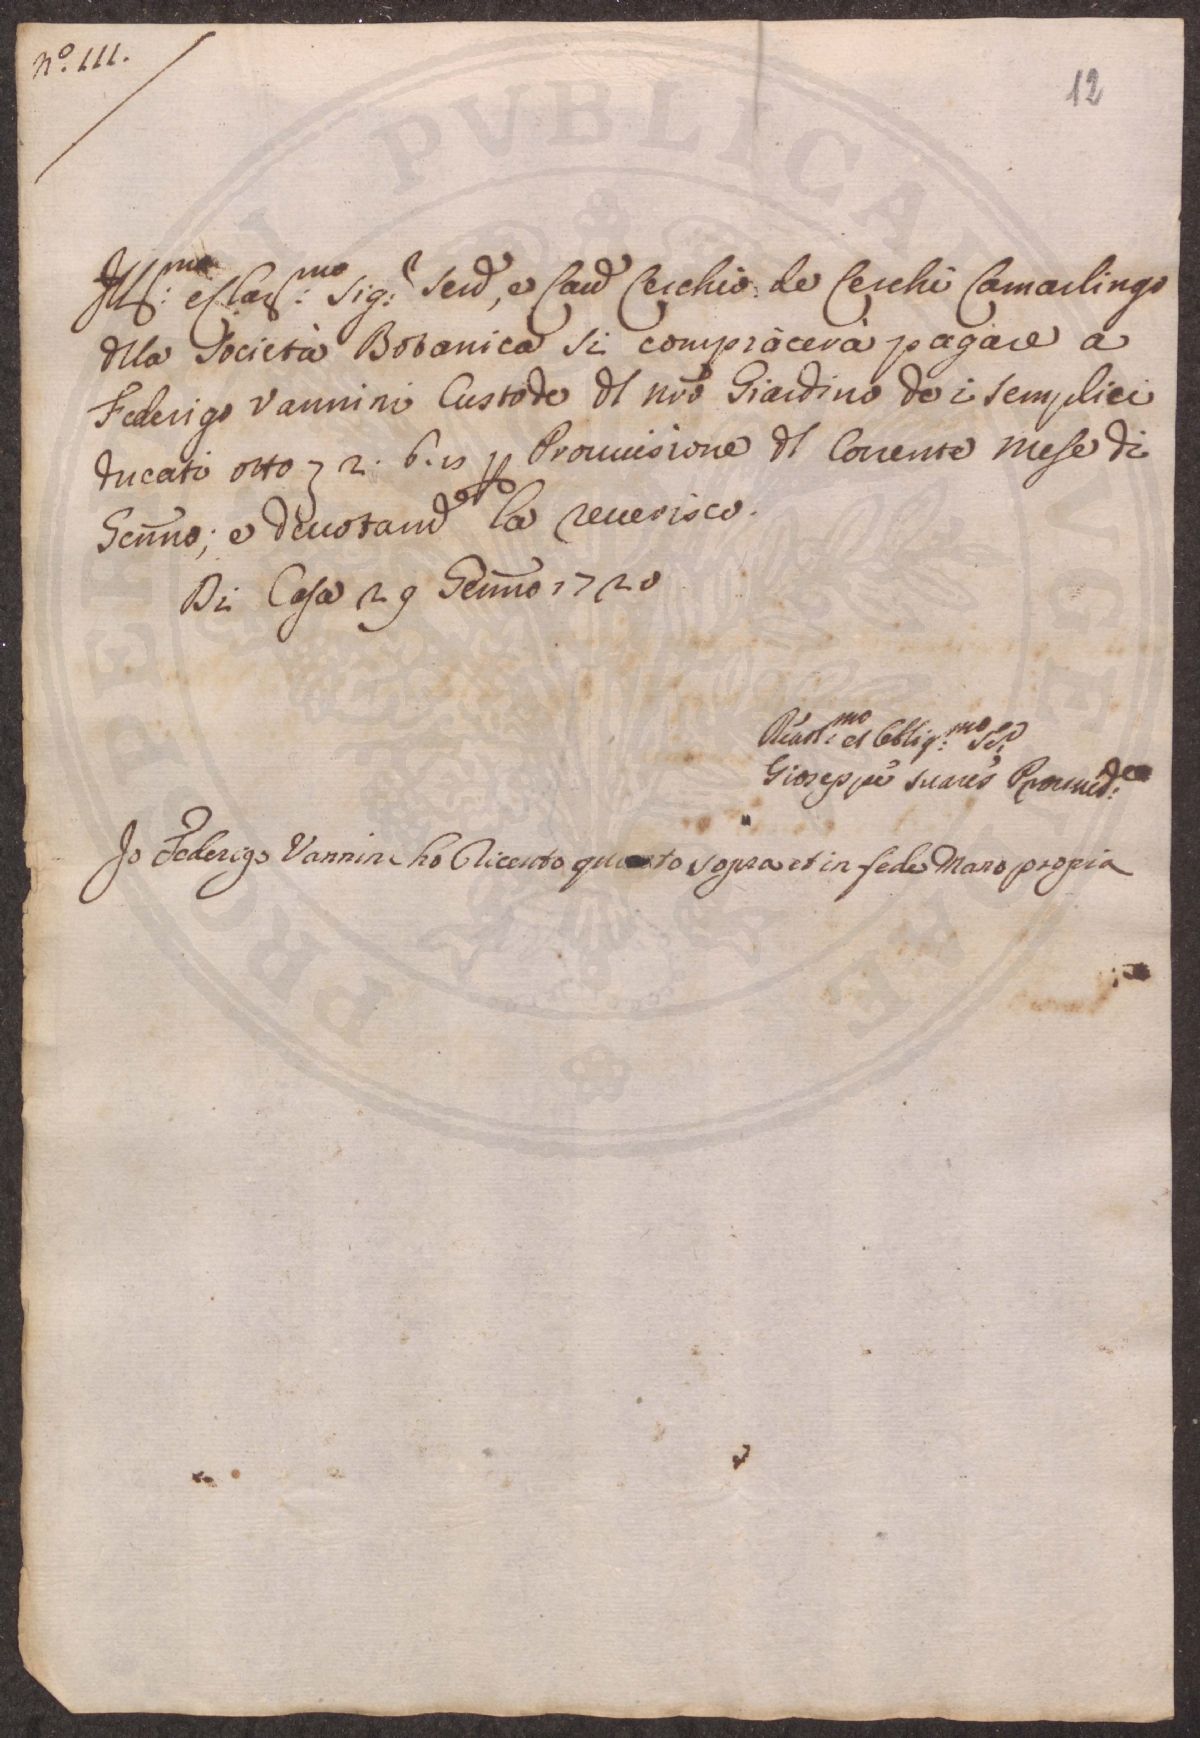 N.º III.
12
Ill:mo e Clar:mo Sig:r Send, e Caud Cerchio de Cerchi Camarlingo
dlla Società Botanica si compiacerà pagare a
Federigo Vannini Custode dl nro Giardino de i semplici
ducati otto 2. 6. pp Provvisione dl Corrente Mese di
Genno; e devotand la reverisco.
Di Casa 29 Genno 1720
et Oblig:mo Sre
Gioseppe Suares Provved:re
Jo Federigo Vannini ho Riceuto quanto sopra et in fede Mano propia
PROGREDI PVBLICAE VICE